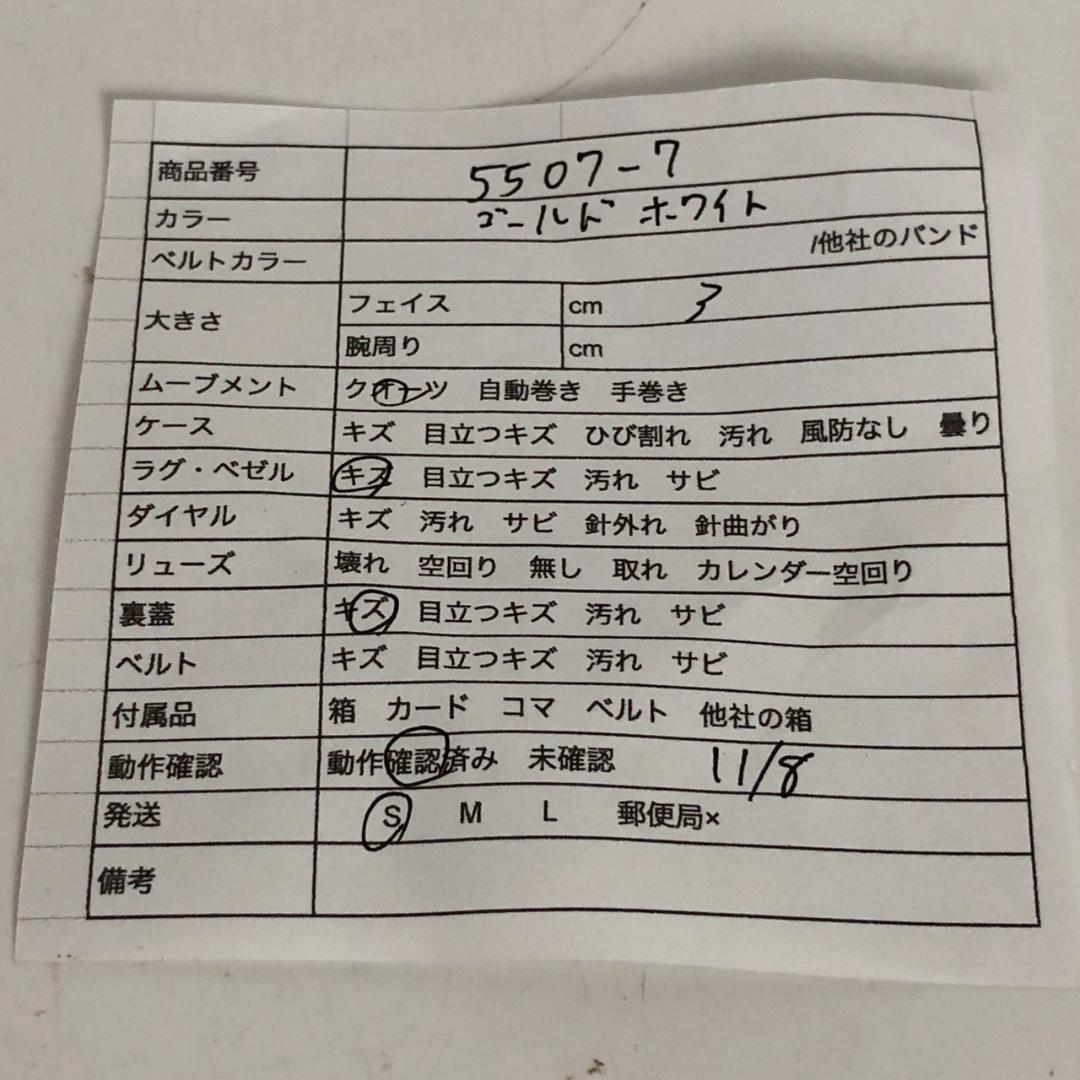 商品番号 5507-7
カラー ゴールド ホワイト
ベルトカラー /他社のバンド
大きさ フェイス cm 3
腕周り cm
ムーブメント クオーツ 自動巻き 手巻き
ケース キズ 目立つキズ ひび割れ 汚れ 風防なし 曇り
ラグ・ベゼル キズ 目立つキズ 汚れ サビ
ダイヤル キズ 汚れ サビ 針外れ 針曲がり
リューズ 壊れ 空回り 無し 取れ カレンダー空回り
裏蓋 キズ 目立つキズ 汚れ サビ
ベルト キズ 目立つキズ 汚れ サビ
付属品 箱 カード コマ ベルト 他社の箱
動作確認 動作確認済み 未確認 11/8
発送 S M L 郵便局×
備考